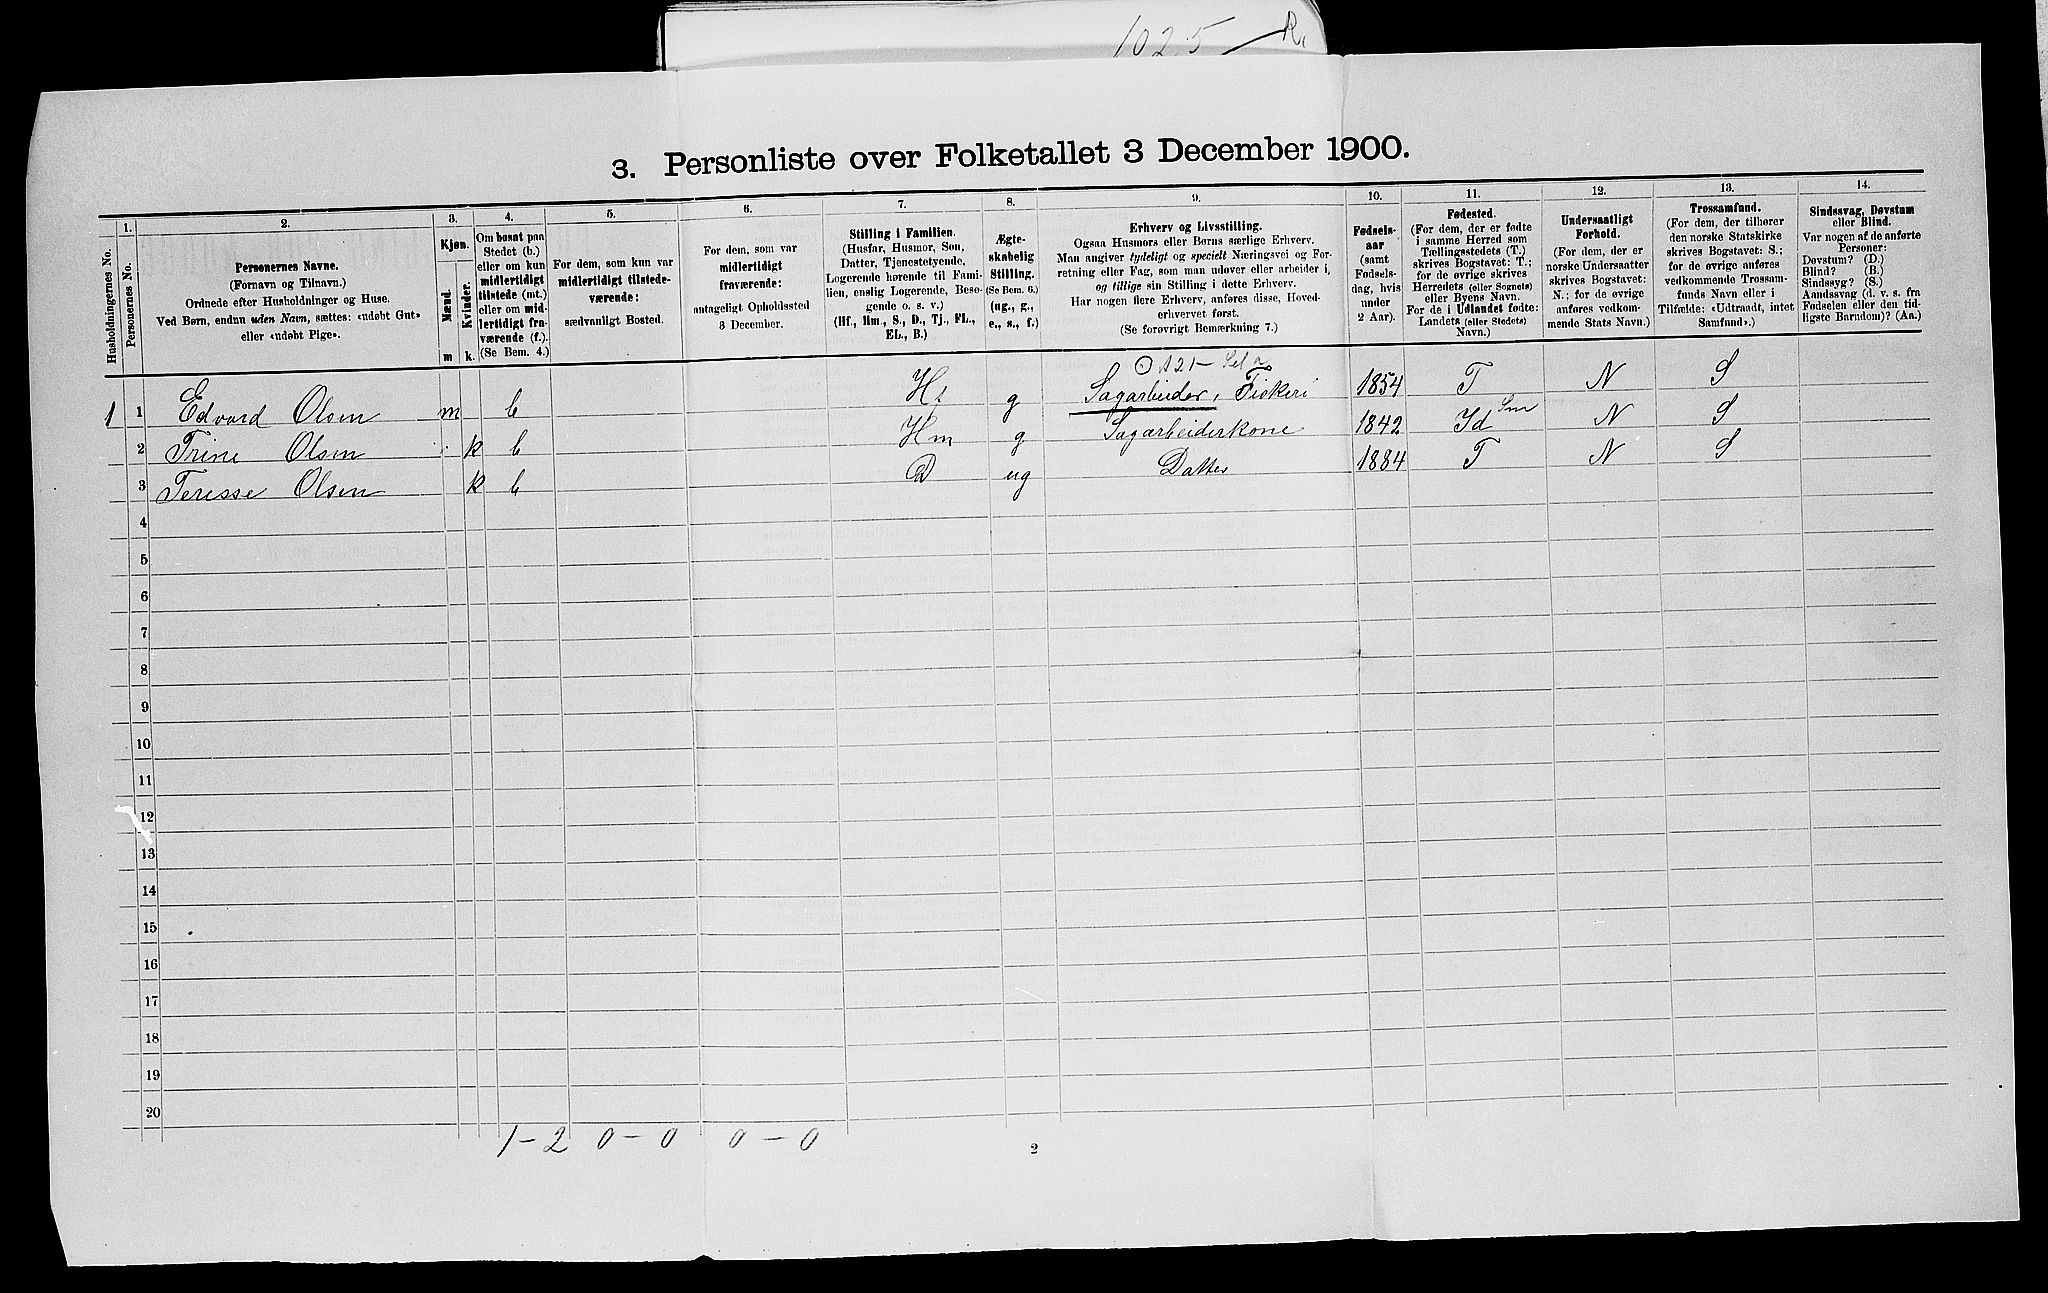 1025 — R.
3. Personliste over Folketallet 3 December 1900.
1. 2. 3. 4. 5. 6. 7. 8. 9. 10. 11. 12. 13. 14.
Husholdningernes No.
Personernes No.
Personernes Navne.
(Fornavn og Tilnavn.)
Ordnede efter Husholdninger og Huse.
Ved Børn, endnu uden Navn, sættes: «udøbt Gut»
eller «udøbt Pige».
Kjøn.
Mænd.
Kvinder.
m k.
Om bosat paa
Stedet (b.)
eller om kun
midlertidigt
tilstede (mt.)
eller om mid-
lertidigt fra-
værende (f.).
(Se Bem. 4.)
For dem, som kun var
midlertidigt tilstede-
værende:
sædvanligt Bosted.
For dem, som var
midlertidigt
fraværende:
antageligt Opholdssted
3 December.
Stilling i Familien.
(Husfar, Husmor, Søn,
Datter, Tjenestetyende,
Logerende hørende til Fami-
lien, enslig Logerende, Besø-
gende o. s. v.)
(Hf., Hm., S., D., Tj., FL.,
EL., B.)
Ægte-
skabelig
Stilling.
(Se Bem. 6.)
(ug., g.,
e., s., f.)
Erhverv og Livsstilling.
Ogsaa Husmors eller Børns særlige Erhverv.
Man angiver tydeligt og specielt Næringsvei og For-
retning eller Fag, som man udøver eller arbeider i,
og tillige sin Stilling i dette Erhverv.
Har nogen flere Erhverv, anføres disse, Hoved-
erhvervet først.
(Se forøvrigt Bemærkning 7.)
Fødsels-
aar
(samt
Fødsels-
dag, hvis
under
2 Aar).
Fødested.
(For dem, der er fødte
i samme Herred som
Tællingsstedets (T.)
skrives Bogstavet: T.;
for de øvrige skrives
Herredets (eller Sognets)
eller Byens Navn.
For de i Udlandet fødte:
Landets (eller Stedets)
Navn.)
Undersaatligt
Forhold.
(For dem, der er
norske Undersaatter
skrives Bogstavet:
N.; for de øvrige
anføres vedkom-
mende Stats Navn.)
Trossamfund.
(For dem, der tilhører
den norske Statskirke
skrives Bogstavet: S.;
for de øvrige anføres
vedkommende Trossam-
funds Navn eller i
Tilfælde: «Udtraadt, intet
Samfund».)
Sindssvag, Døvstum
eller Blind.
Var nogen af de anførte
Personer:
Døvstum? (D.)
Blind? (B.)
Sindssyg? (S.)
Aandssvag (d. v. s. fra
Fødselen eller den tid-
ligste Barndom)? (Aa.)
1 1 Edvard Olsen m b Hf g Sagarbeider, Fiskeri 1854 T N S
2 Trine Olsen k b Hm g Sagarbeiderkone 1842 Id Sm N S
3 Teresse Olsen k b D ug Datter 1884 T N S
4
5
6
7
8
9
10
11
12
13
14
15
16
17
18
19
20
1 – 2 0 – 0 0 – 0
2